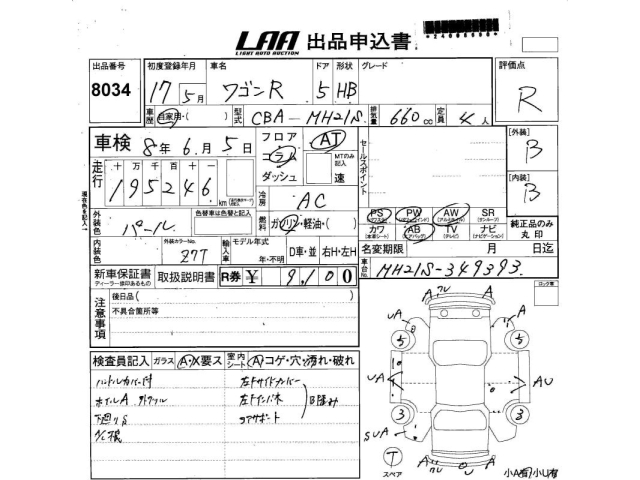 LAA 出品申込書
LIGHT AUTO AUCTION
出品番号 初度登録年月 車名 ドア 形状 グレード 評価点
8034 17年5月 ワゴンR 5 HB R
車歴 自家用・( ) 型式 CBA-MH21S 排気量 660cc 定員 4人
車検 8年6月5日 フロア コラム ダッシュ AT MTのみ記入 速 セールスポイント
[外装] B
走行 十万千百十 195246 km
[内装] B
現在色を記入
冷房 AC
外装色 パール 色替車は色替と記入 燃料 ガソリン・軽油・( )
PS PW AW SR
カワ AB TV ナビ 純正品のみ丸印
内装色 外装カラーNo. Z7T 輸入車 モデル年式 年・不明 D車・並 右H・左H
名変期限 月 日迄
新車保証書 ディーラー印のあるもの 取扱説明書 R券 ¥ 9,100
車台No. MH21S-349393
注意事項 後日品( )
不具合箇所等
ロック車
検査員記入 ガラス A・X要ス 室内シート A コゲ・穴・汚れ・破れ
ハンドルカバー付 左Fサイドカバー
ホイルA
下廻りS コアサポート
A UA A
5 5
UA AU
3 3
SUA A
T
スペア
小A有 小U有